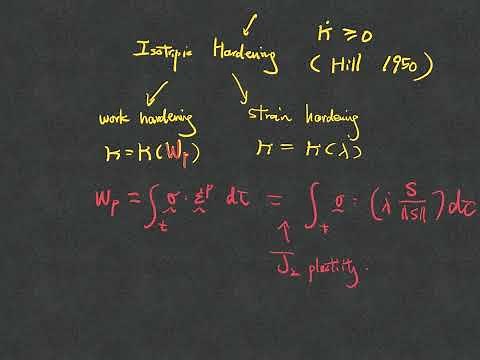 Isotropic Hardening
κ̇ ≥ 0
(Hill 1950)
work hardening
strain hardening
κ = κ(Wp)
κ = κ(λ)
Wp = ∫_t σ · ε̇^p dτ = ∫_t σ : (λ̇ S/‖S‖) dτ
J₂ plasticity.